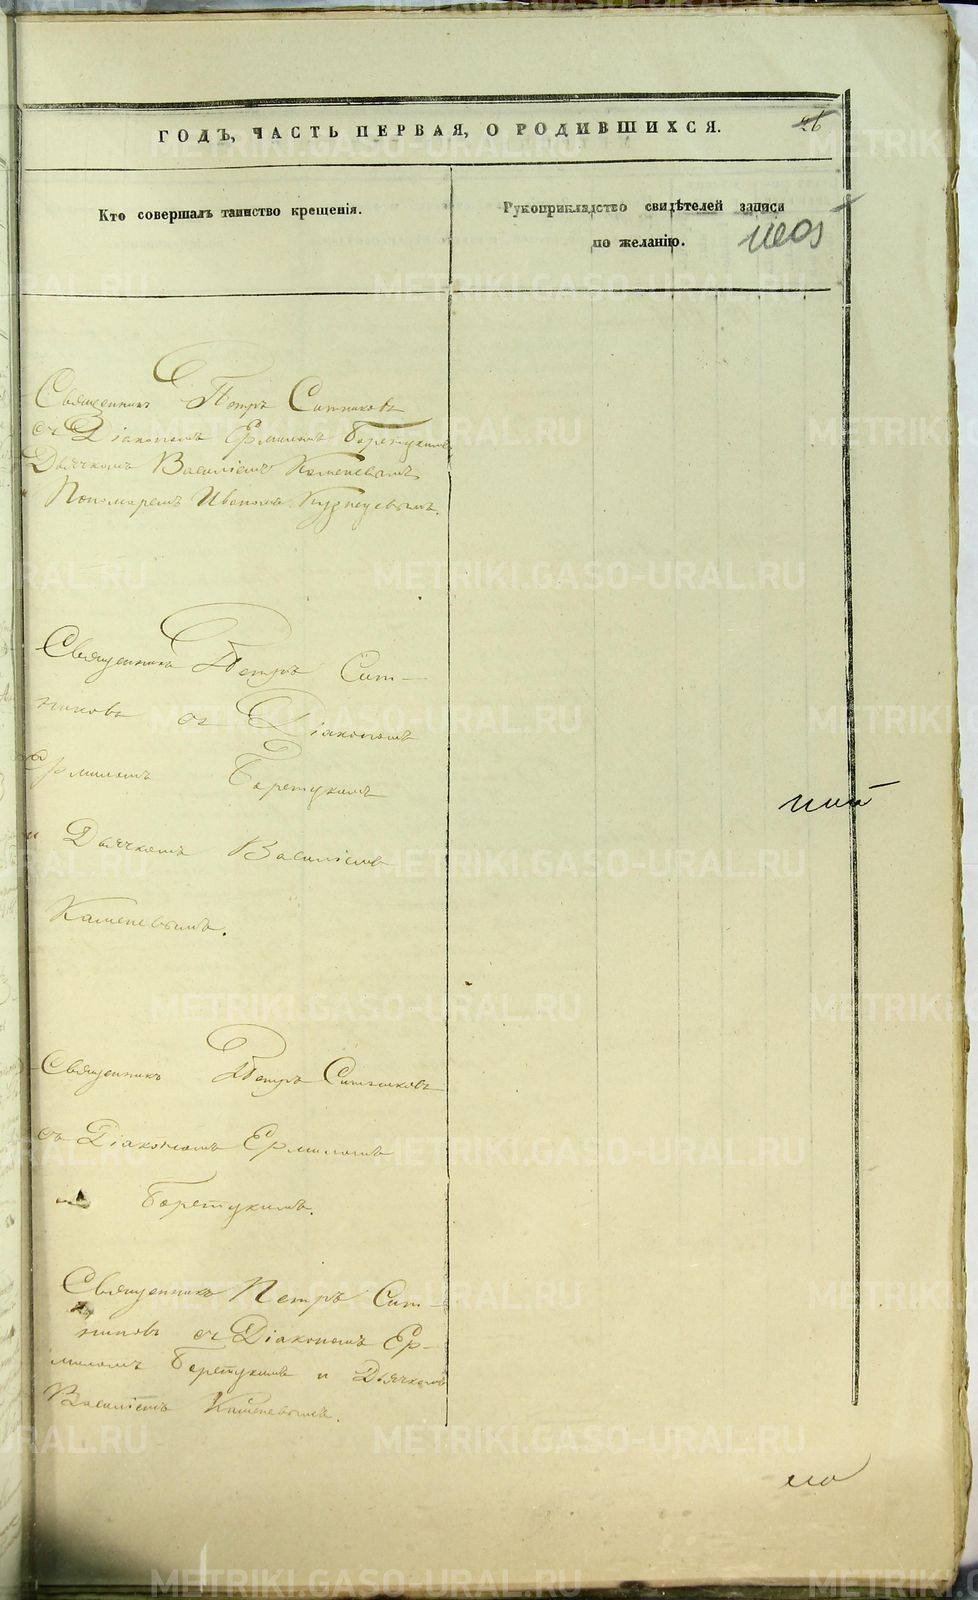 ГОДЪ, ЧАСТЬ ПЕРВАЯ, О РОДИВШИХСЯ.
26
Кто совершалъ таинство крещенія.
Рукоприкладство свидѣтелей записи
по желанію.
Священникъ Петръ Ситниковъ
съ Діакономъ Ермиломъ Боретцкимъ
Дьячкомъ Василіемъ Каменевымъ
Пономаремъ Иваномъ Кузнецевымъ.
Священникъ Петръ Сит-
никовъ съ Діакономъ
Ермиломъ Боретцкимъ
и Дьячкомъ Василіемъ
Каменевымъ.
Священникъ Петръ Ситниковъ
съ Діакономъ Ермиломъ
Боретцкимъ.
Священникъ Петръ Сит-
никовъ съ Діакономъ Ер-
миломъ Боретцкимъ и Дьячкомъ
Василіемъ Каменевымъ.
METRIKI.GASO-URAL.RU